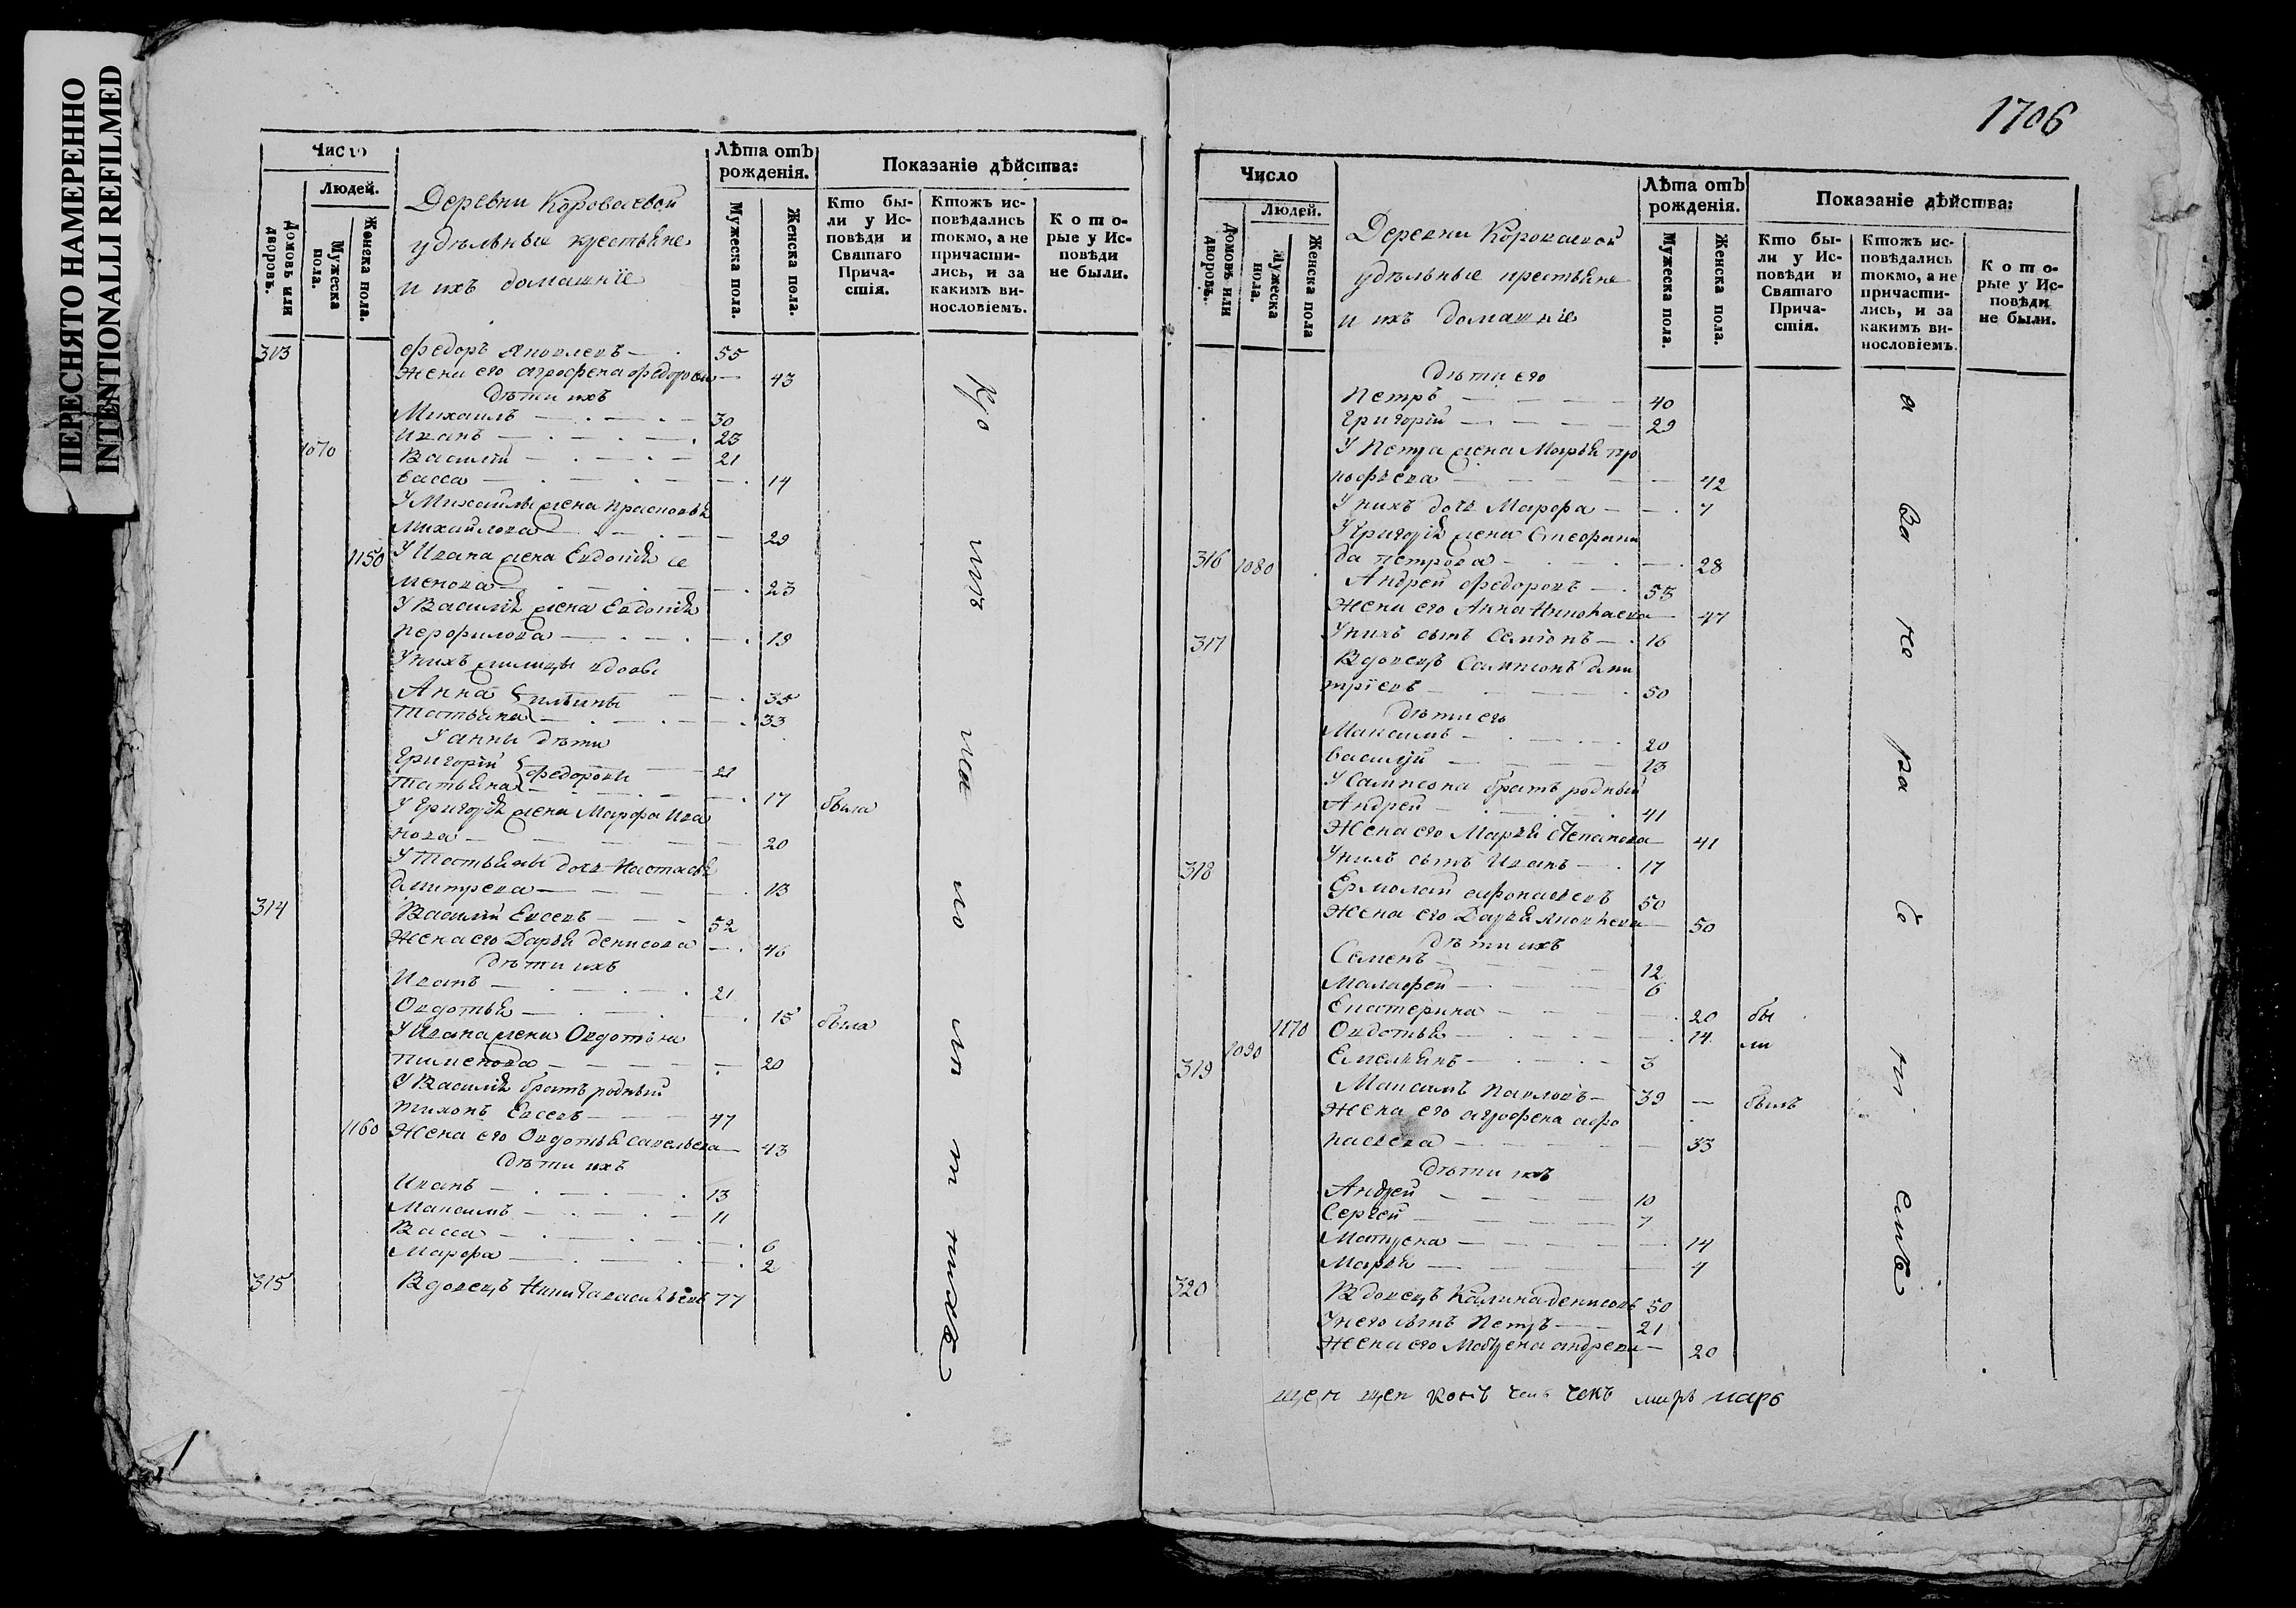 ПЕРЕСНЯТО НАМЕРЕННО
INTENTIONALLI REFILMED
Число
Людей.
Домовъ или дворовъ.
Мужеска пола.
Женска пола.
Деревни Короваевой
удѣльные крестьяне
и ихъ домашніе
Лѣта отъ рожденія.
Мужеска пола.
Женска пола.
Показаніе дѣйства:
Кто бы-
ли у Ис-
повѣди и
Святаго
Прича-
стія.
Ктожъ ис-
повѣдались
токмо, а не
причасти-
лись, и за
какимъ ви-
нословіемъ.
К о т о-
рые у Ис-
повѣди
не были.
313 Федоръ Яковлевъ 55
Жена его Агрофена Федорова 43
Дѣти ихъ
Михаилъ 30
Иванъ 23
1070 Василій 21
Васса 14
У Михаилы жена Прасковья
Михайлова 29
1150 У Ивана жена Евдокія Се
менова 23
У Василія жена Евдокія
Перфилова 19
У нихъ жилицы вдовы
Анна 35
Татьяна 33
У Анны дѣти
Григорій Федоровы 21
Татьяна 17 была
У Григорья жена Марфа Ива
нова 20
У Татьяны дочь Настасья
Дмитрева 13
314 Василій Евсевъ 52
Жена его Дарья Денисова 46
Дѣти ихъ
Иванъ 21
Овдотья 15 была
У Ивана жена Овдотья
Пименова 20
У Василія братъ родный
Тихонъ Евсевъ 47
1160 Жена его Овдотья Савельева 43
Дѣти ихъ
Иванъ 13
Максимъ 11
Васса 6
Марфа 2
315 Вдовецъ Никита Васильевъ 77
1706
Число
Людей.
Домовъ или дворовъ.
Мужеска пола.
Женска пола
Деревни Короваевой
удѣльные крестьяне
и ихъ домашніе
Лѣта отъ рожденія.
Мужеска пола.
Женска пола.
Показаніе дѣйства:
Кто бы-
ли у Ис-
повѣди и
Святаго
Прича-
стія.
Ктожъ ис-
повѣдались
токмо, а не
причасти-
лись, и за
какимъ ви-
нословіемъ.
К о т о-
рые у Ис-
повѣди
не были.
Дѣти его
Петръ 40
Григорій 29
У Петра жена Марья Про
кофьева 42
У нихъ дочь Марфа 7
У Григорья жена Стефани
да Петрова 28
316 1080 Андрей Федоровъ 53
Жена его Анна Николаева 47
У нихъ сынъ Семіонъ 16
317 Вдовецъ Сампсонъ Дми
тріевъ 50
Дѣти его
Максимъ 20
Василій 13
У Сампсона братъ родный
Андрей 41
Жена его Марья Степанова 41
У нихъ сынъ Иванъ 17
318 Ермолай Афонасьевъ 50
Жена его Дарья Яковлева 50
Дѣти ихъ
Семенъ 12
Малафей 6
Екатерина 20 бы
1170 Овдотья 14 ли
1090 Емельянъ 3
319 Максимъ Павловъ 39 былъ
Жена его Агрофена Афо
насьева 33
Дѣти ихъ
Андрей 10
Сергей 7
Матрена 14
Марья 4
320 Вдовецъ Калина Денисовъ 50
У него сынъ Петръ 21
Жена его Матрена Андрева 20